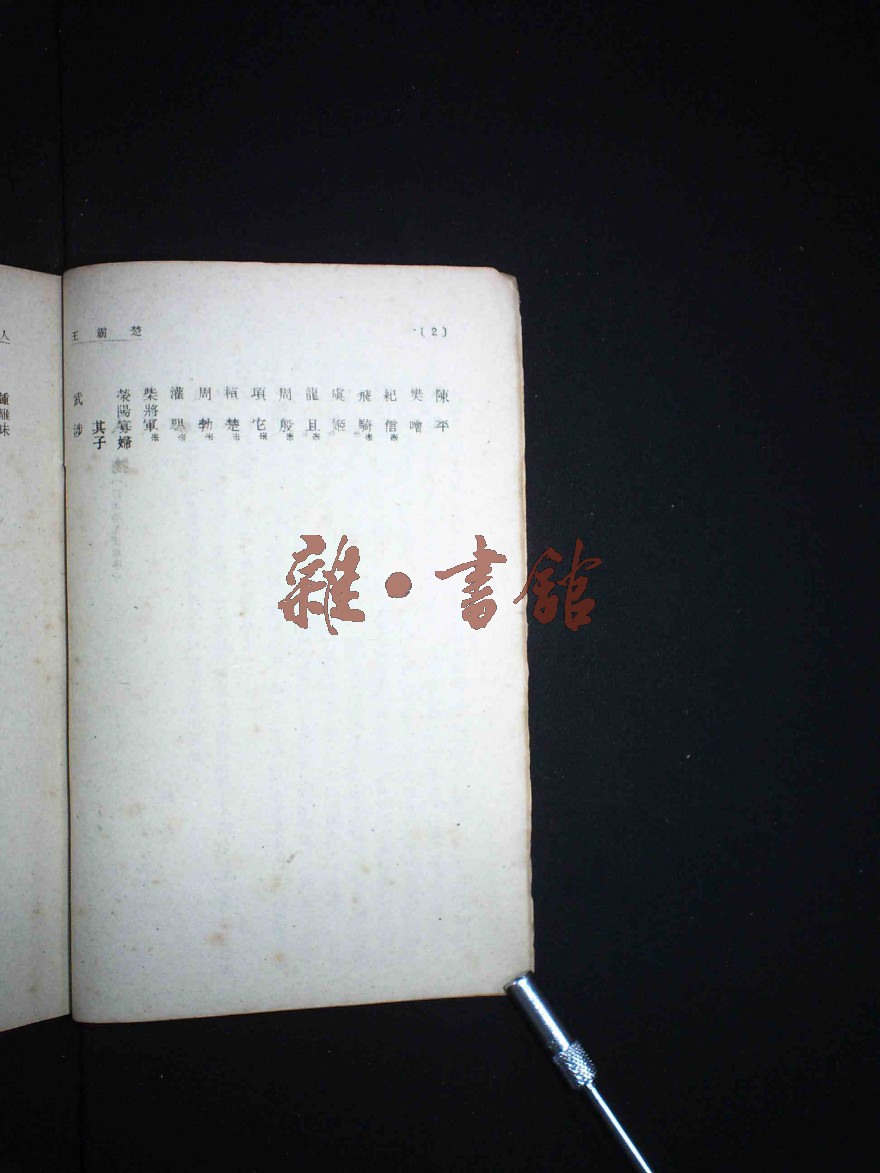 楚霸王
(2)
陳平
樊噲
紀信※
飛騎※
虞姬
龍且※
周殷※
項它※
桓楚※
周勃※
灌嬰※
柴將軍※
滎陽寡婦
其子
武涉
人
鍾離昧
雜·書館